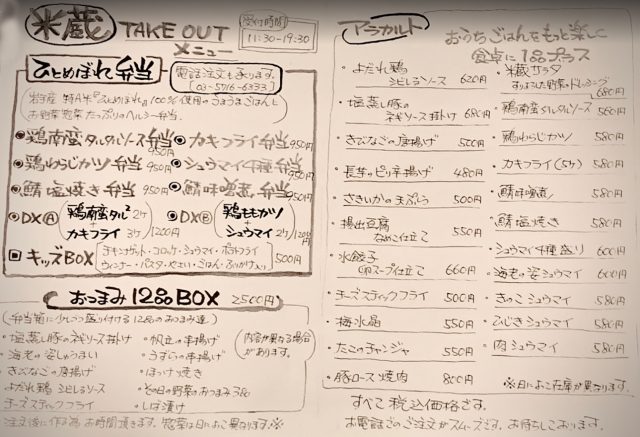 米蔵 TAKE OUT メニュー
受付時間
11:30-19:30
ひとめぼれ弁当
電話注文も承ります。
(03-5716-6333)
岩手産 特A米『ひとめぼれ』100%使用のうまうまごはんと
お野菜惣菜たっぷりのヘルシー弁当。
鶏南蛮タルタルソース弁当 950円
カキフライ弁当 950円
鶏わらじカツ弁当 950円
シュウマイ4種弁当 950円
鯖塩焼き弁当 950円
鯖味噌煮弁当 950円
DXⒶ 鶏南蛮タル² 2ケ + カキフライ 3ケ 1200円
DXⒷ 鶏ももカツ + シュウマイ 2ケ 1200円
キッズBOX チキンナゲット・コロッケ・シュウマイ・ポテトフライ
ウィンナー・パスタ・やさい・ごはん・ふりかけ入り 500円
おつまみ12品BOX 2500円
(弁当箱に少しづつ盛り付ける12品のおつまみ達)
内容が異なる場合
があります。
・塩蒸し豚のネギソース掛け
・海老の姿しゅうまい
・きびなごの唐揚げ
・よだれ鶏 シビレるソース
・チーズスティックフライ
・帆立の串揚げ
・うずらの串揚げ
・ほっけ焼き
・その日の野菜のおつまみ3品
・しば漬け
注文後に作る為お時間頂きます。惣菜は日によって異なります。※
アラカルト
おうちごはんをもっと楽しく
食卓に1品プラス
・よだれ鶏 シビレるソース 620円
・塩蒸し豚の ネギソース掛け 680円
・きびなごの唐揚げ 500円
・長芋のピリ辛揚げ 480円
・さきいかの天ぷら 500円
・揚出豆腐 なめこ仕立て 550円
・水餃子 卵スープ仕立て 660円
・チーズスティックフライ 500円
・梅水晶 550円
・たこのチャンジャ 550円
・豚ロース焼肉 800円
・米蔵サラダ すりおろした野菜のドレッシング 680円
・鶏南蛮タルタルソース 560円
・鶏わらじカツ 580円
・カキフライ(5ケ) 580円
・鯖味噌煮 580円
・鯖塩焼き 580円
・シュウマイ4種盛り 600円
・海老の姿シュウマイ 600円
・きのこシュウマイ 580円
・ひじきシュウマイ 580円
・肉シュウマイ 580円
※日によって在庫が異なります。
すべて税込価格です。
お電話でのご注文がスムーズです。お待ちしております。